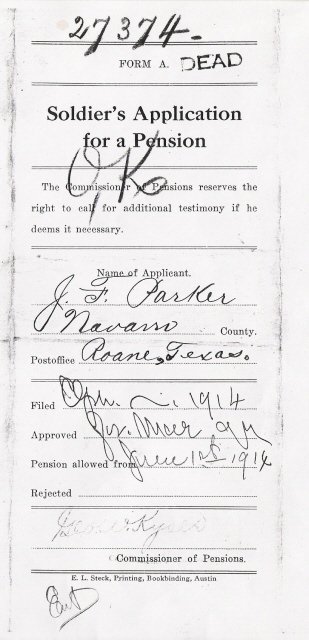 27374-
FORM A. DEAD
Soldier's Application
for a Pension
OK
The Commissioner of Pensions reserves the
right to call for additional testimony if he
deems it necessary.
Name of Applicant.
J. F. Parker
Navarro County.
Postoffice Roane, Texas.
Filed 1914
Approved
Pension allowed from June 1st 1914
Rejected
Commissioner of Pensions.
E. L. Steck, Printing, Bookbinding, Austin